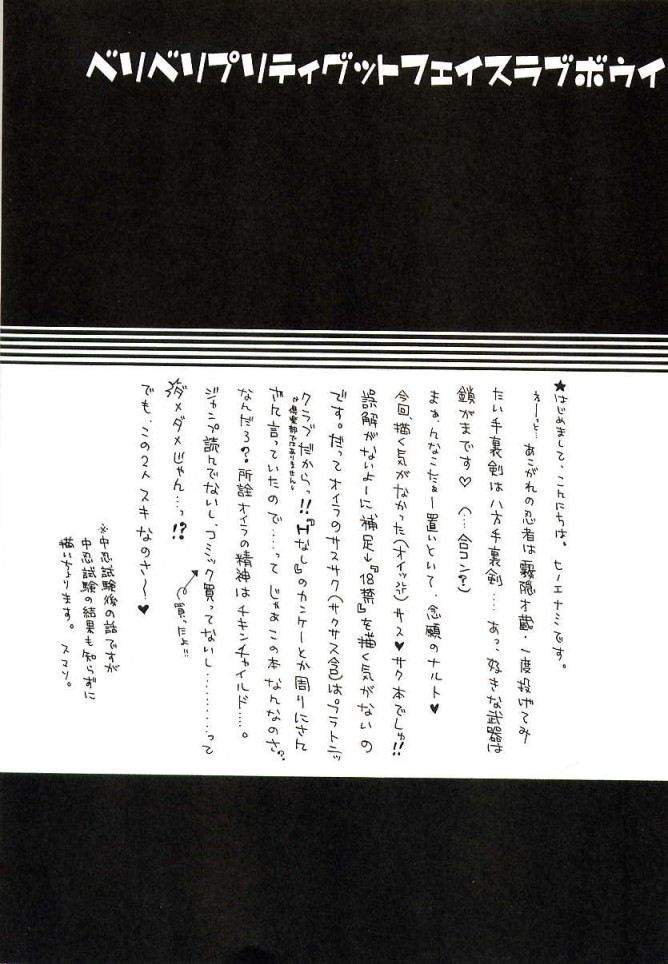 ベリベリプリティグットフェイスラブボウイ
★はじめまして、こんにちは。ヒノエナミです。
えーっと…あこがれの忍者は霧隠才蔵・一度投げてみ
たい手裏剣は八方手裏剣……あっ、好きな武器は
鎖がまです♡(…合コン?)
まぁ、んなこたぁー置いといて、念願のナルト♥
今回、描く気がなかった(オイッ)サス♥サク本でしゅ!!
誤解がないよーに補足→『18禁』を描く気がないの
です。だってオイラのサスサク(サクサス含)はプラトニッ
クラブだからっ!!『Hなし』のカンケーとか周りにさん
※倶楽部ではありません。
ざん言っていたので……って じゃあこの本なんなのさ?
なんだろ?所詮オイラの精神はチキンチャイルド……。
ジャンプ読んでないし、コミック買ってないし………って
買ったよ!!
ダメダメじゃん…っ!?
でも、この2人スキなのさ〜♥
※中忍試験後の話ですが
中忍試験の結果も知らずに
描いちょります。スマソ。